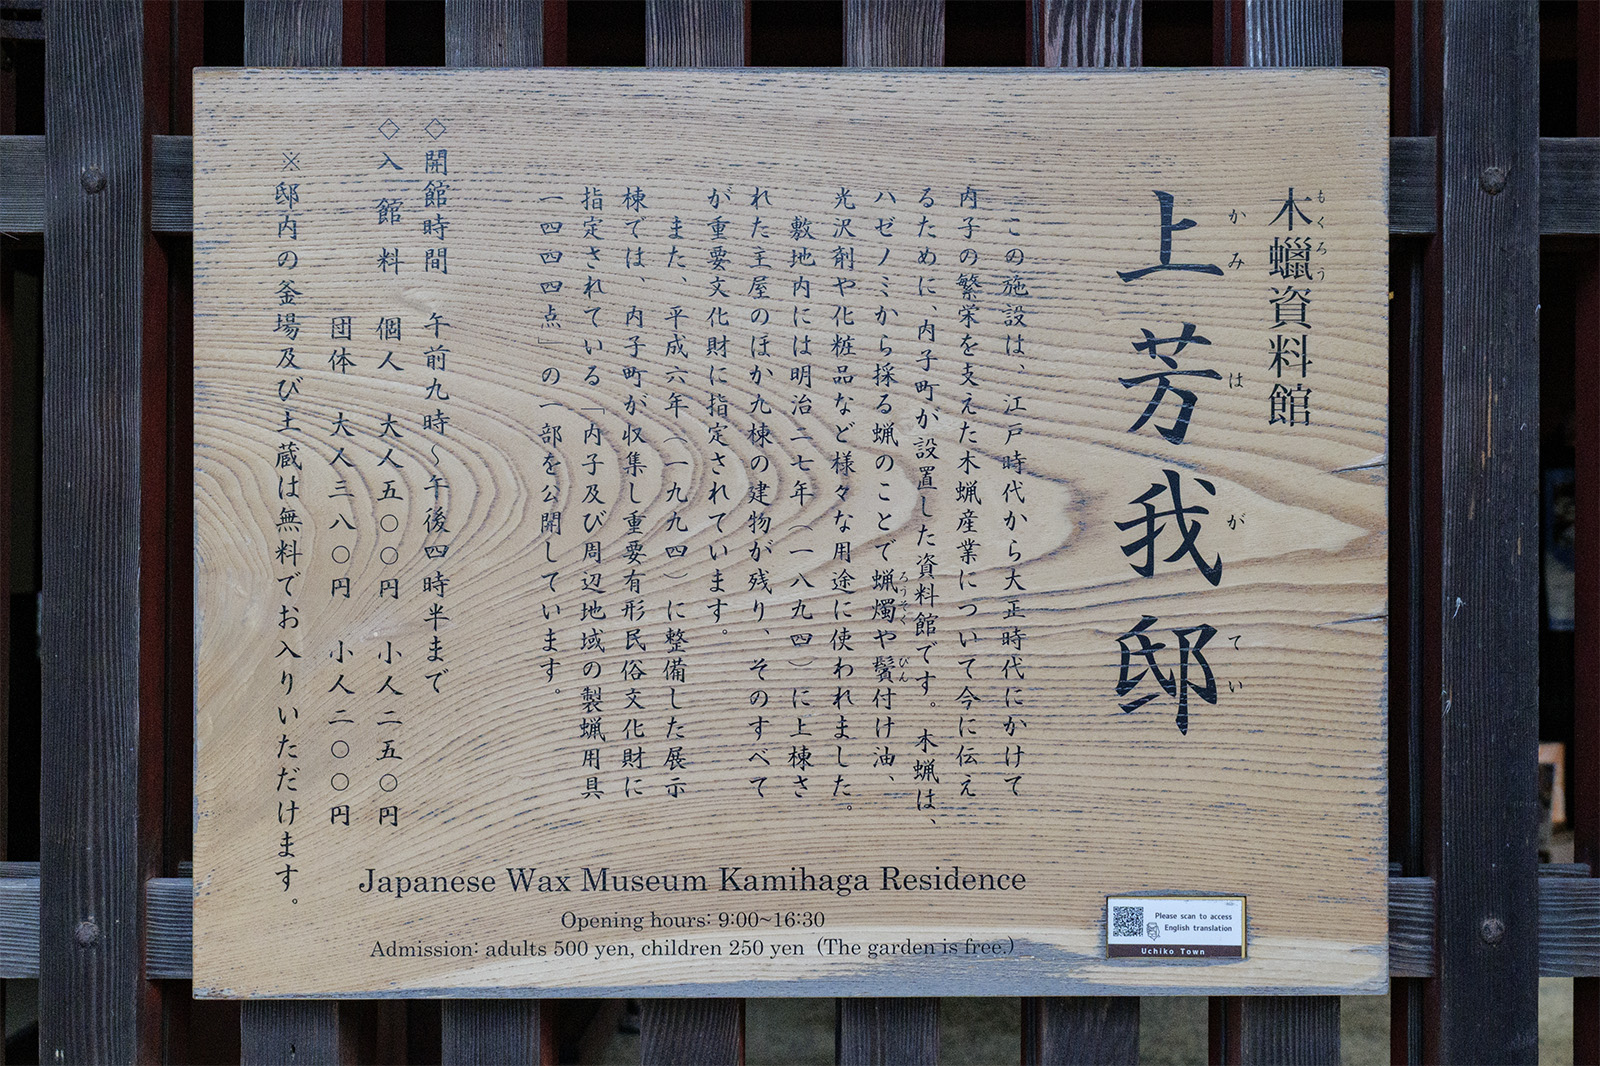 木蠟資料館
もくろう
上芳我邸
かみ は が てい
この施設は、江戸時代から大正時代にかけて
内子の繁栄を支えた木蝋産業について今に伝え
るために、内子町が設置した資料館です。木蝋は、
ハゼノミから採る蝋のことで蝋燭や鬢付け油、
ろうそく びん
光沢剤や化粧品など様々な用途に使われました。
敷地内には明治二七年（一八九四）に上棟さ
れた主屋のほか九棟の建物が残り、そのすべて
が重要文化財に指定されています。
また、平成六年（一九九四）に整備した展示
棟では、内子町が収集し重要有形民俗文化財に
指定されている「内子及び周辺地域の製蝋用具
一四四四点」の一部を公開しています。
◇開館時間 午前九時～午後四時半まで
◇入館料 個人 大人五〇〇円 小人二五〇円
団体 大人三八〇円 小人二〇〇円
※邸内の釜場及び土蔵は無料でお入りいただけます。
Japanese Wax Museum Kamihaga Residence
Opening hours: 9:00~16:30
Admission: adults 500 yen, children 250 yen (The garden is free.)
Please scan to access
English translation
Uchiko Town